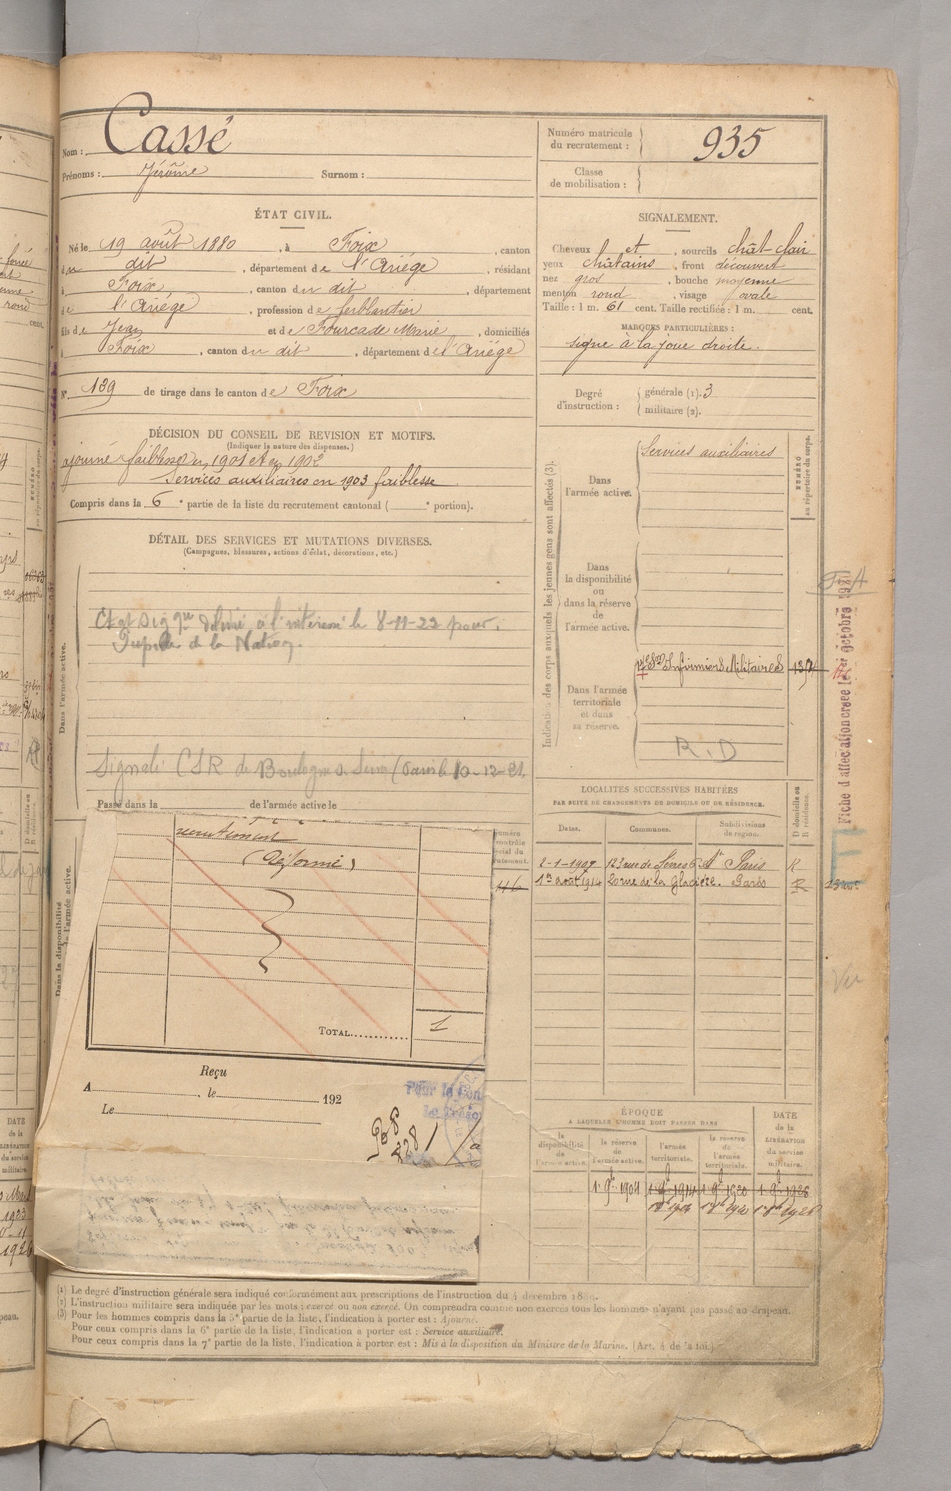 Nom : Cassé
Prénoms : Jérôme Surnom :
Numéro matricule du recrutement : 935
Classe de mobilisation :
ÉTAT CIVIL.
Né le 19 août 1880, à Foix, canton
du dit, département de l'Ariége, résidant
à Foix, canton du dit, département
de l'Ariége, profession de ferblantier
fils de Jean et de Fourcade Marie, domiciliés
à Foix, canton du dit, département de l'Ariége
N° 139 de tirage dans le canton de Foix
SIGNALEMENT.
Cheveux et, sourcils chât clair
yeux châtains, front découvert
nez gros, bouche moyenne
menton rond, visage ovale
Taille : 1 m. 61 cent. Taille rectifiée : 1 m. cent.
MARQUES PARTICULIÈRES :
signe à la joue droite.
Degré d'instruction : générale (1). 3
militaire (2).
DÉCISION DU CONSEIL DE REVISION ET MOTIFS.
(Indiquer la nature des dispenses.)
ajourné faiblesse en 1901 et en 1902
Services auxiliaires en 1903 faiblesse
Compris dans la 6e partie de la liste du recrutement cantonal ( e portion).
DÉTAIL DES SERVICES ET MUTATIONS DIVERSES.
(Campagnes, blessures, actions d'éclat, décorations, etc.)
Dans l'armée active.
délivré à l'intéressé le 8-11-22 pour
Pupille de la Nation
Signalé CSR de Boulogne s. Seine (Paris) le 10-12-21.
Passé dans la de l'armée active le
Dans la disponibilité
recrutement
(Réformé)
TOTAL........... 1
Reçu
A , le 192
Le
Pour le
Indication des corps auxquels les jeunes gens sont affectés (3).
NUMÉRO au répertoire du corps.
Dans l'armée active. Services auxiliaires
Dans la disponibilité ou dans la réserve de l'armée active.
Dans l'armée territoriale et dans sa réserve.
Son Infirmiers Militaires
R.D
Fiche d'affectation créée le octobre
LOCALITÉS SUCCESSIVES HABITÉES
PAR SUITE DE CHANGEMENTS DE DOMICILE OU DE RÉSIDENCE.
Dates. Communes. Subdivisions de région. D domicile ou R résidence.
2-1-1907 123 rue de Sèvres Paris R
1er août 1914 20 rue de la Glacière. Paris R
Vu
ÉPOQUE
A LAQUELLE L'HOMME DOIT PASSER DANS
la disponibilité de l'armée active. la réserve de l'armée active. l'armée territoriale. la réserve de l'armée territoriale. DATE de la LIBÉRATION du service militaire.
1 9bre 1904 1 9bre 1914 1 9bre 1920 1 9bre 1926
(1) Le degré d'instruction générale sera indiqué conformément aux prescriptions de l'instruction du 4 décembre 1889.
(2) L'instruction militaire sera indiquée par les mots : exercé ou non exercé. On comprendra comme non exercés tous les hommes n'ayant pas passé au drapeau.
(3) Pour les hommes compris dans la 5e partie de la liste, l'indication à porter est : Ajourné.
Pour ceux compris dans la 6e partie de la liste, l'indication à porter est : Service auxiliaire.
Pour ceux compris dans la 7e partie de la liste, l'indication à porter est : Mis à la disposition du Ministre de la Marine. (Art. 4 de la loi.)